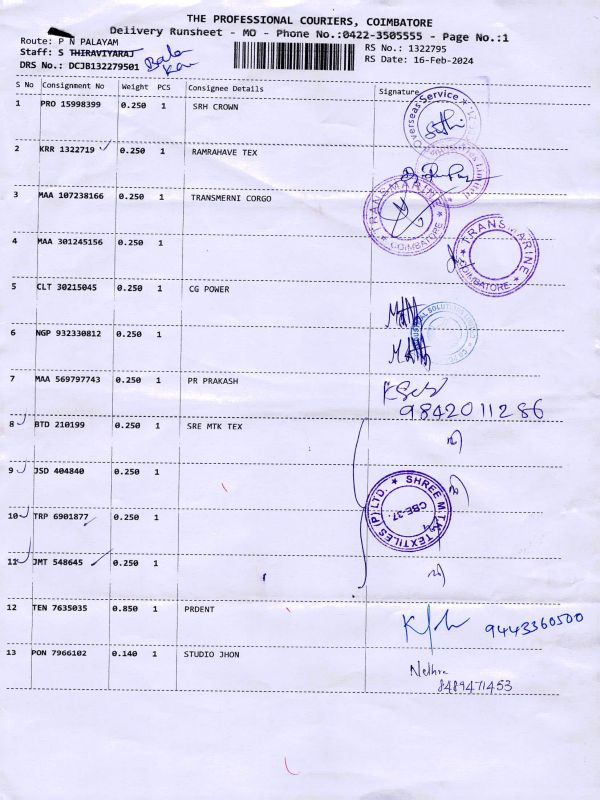 THE PROFESSIONAL COURIERS, COIMBATORE
Delivery Runsheet - MO - Phone No.:0422-3505555 - Page No.:1
Route: P N PALAYAM
RS No.: 1322795
Staff: S THIRAVIYARAJ
RS Date: 16-Feb-2024
DRS No.: DCJB132279501
S No Consignment No Weight PCS Consignee Details Signature
1 PRO 15998399 0.250 1 SRH CROWN
Overseas Service
2 KRR 1322719 0.250 1 RAMRAHAVE TEX
3 MAA 107238166 0.250 1 TRANSMERNI CORGO
TRANSMARINE COIMBATORE
4 MAA 301245156 0.250 1
TRANSMARINE COIMBATORE
5 CLT 30215045 0.250 1 CG POWER
6 NGP 932330812 0.250 1
7 MAA 569797743 0.250 1 PR PRAKASH
9842011286
8 BTD 210199 0.250 1 SRE MTK TEX
9 JSD 404840 0.250 1
10 TRP 6901877 0.250 1
SHREE M.T.K. TEXTILES (P) LTD. CBE-37.
11 JMT 548645 0.250 1
12 TEN 7635035 0.850 1 PRDENT
9443360500
13 PON 7966102 0.140 1 STUDIO JHON
Nethra
8489471453